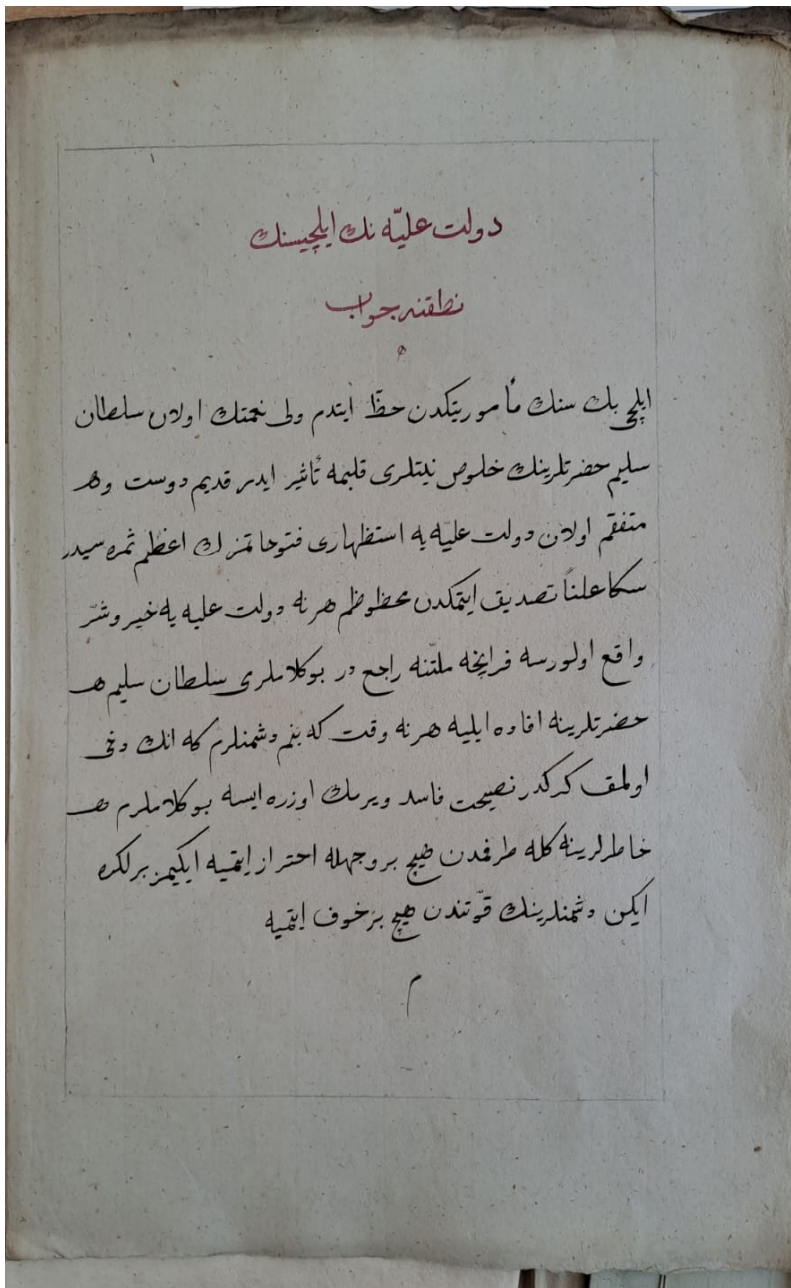 دولت عليّه نك ايلچيسنك
نطقنه جواب
ايلچى بك سنك مأموريتكدن حظّ ايتدم ولى نعمتك اولان سلطان
سليم حضرتلرينك خلوص نيتلرى قلبمه تأثير ايدر قديم دوست وهـ
متفقم اولان دولت عليّه يه استظهارى فتوحاتمزك اعظم ثمره سيدر
سكا علناً تصديق ايتمكدن محظوظم هرنه دولت عليه يه خير وشرّ
واقع اولورسه فرانچه ملتنه راجع در بوكلاملرى سلطان سليم هـ
حضرتلرينه افاده ايليه هرنه وقت كه بنم دشمنلرم كه انك دخى
اولمق كركدر نصيحت فاسد ويرمك اوزره ايسه بوكلاملرم هـ
خاطرلرينه كله طرفمدن هيچ بروجهله احتراز ايتميه ايكيمز برلكده
ايكن دشمنلرينك قوّتندن هيچ برخوف ايتميه
م